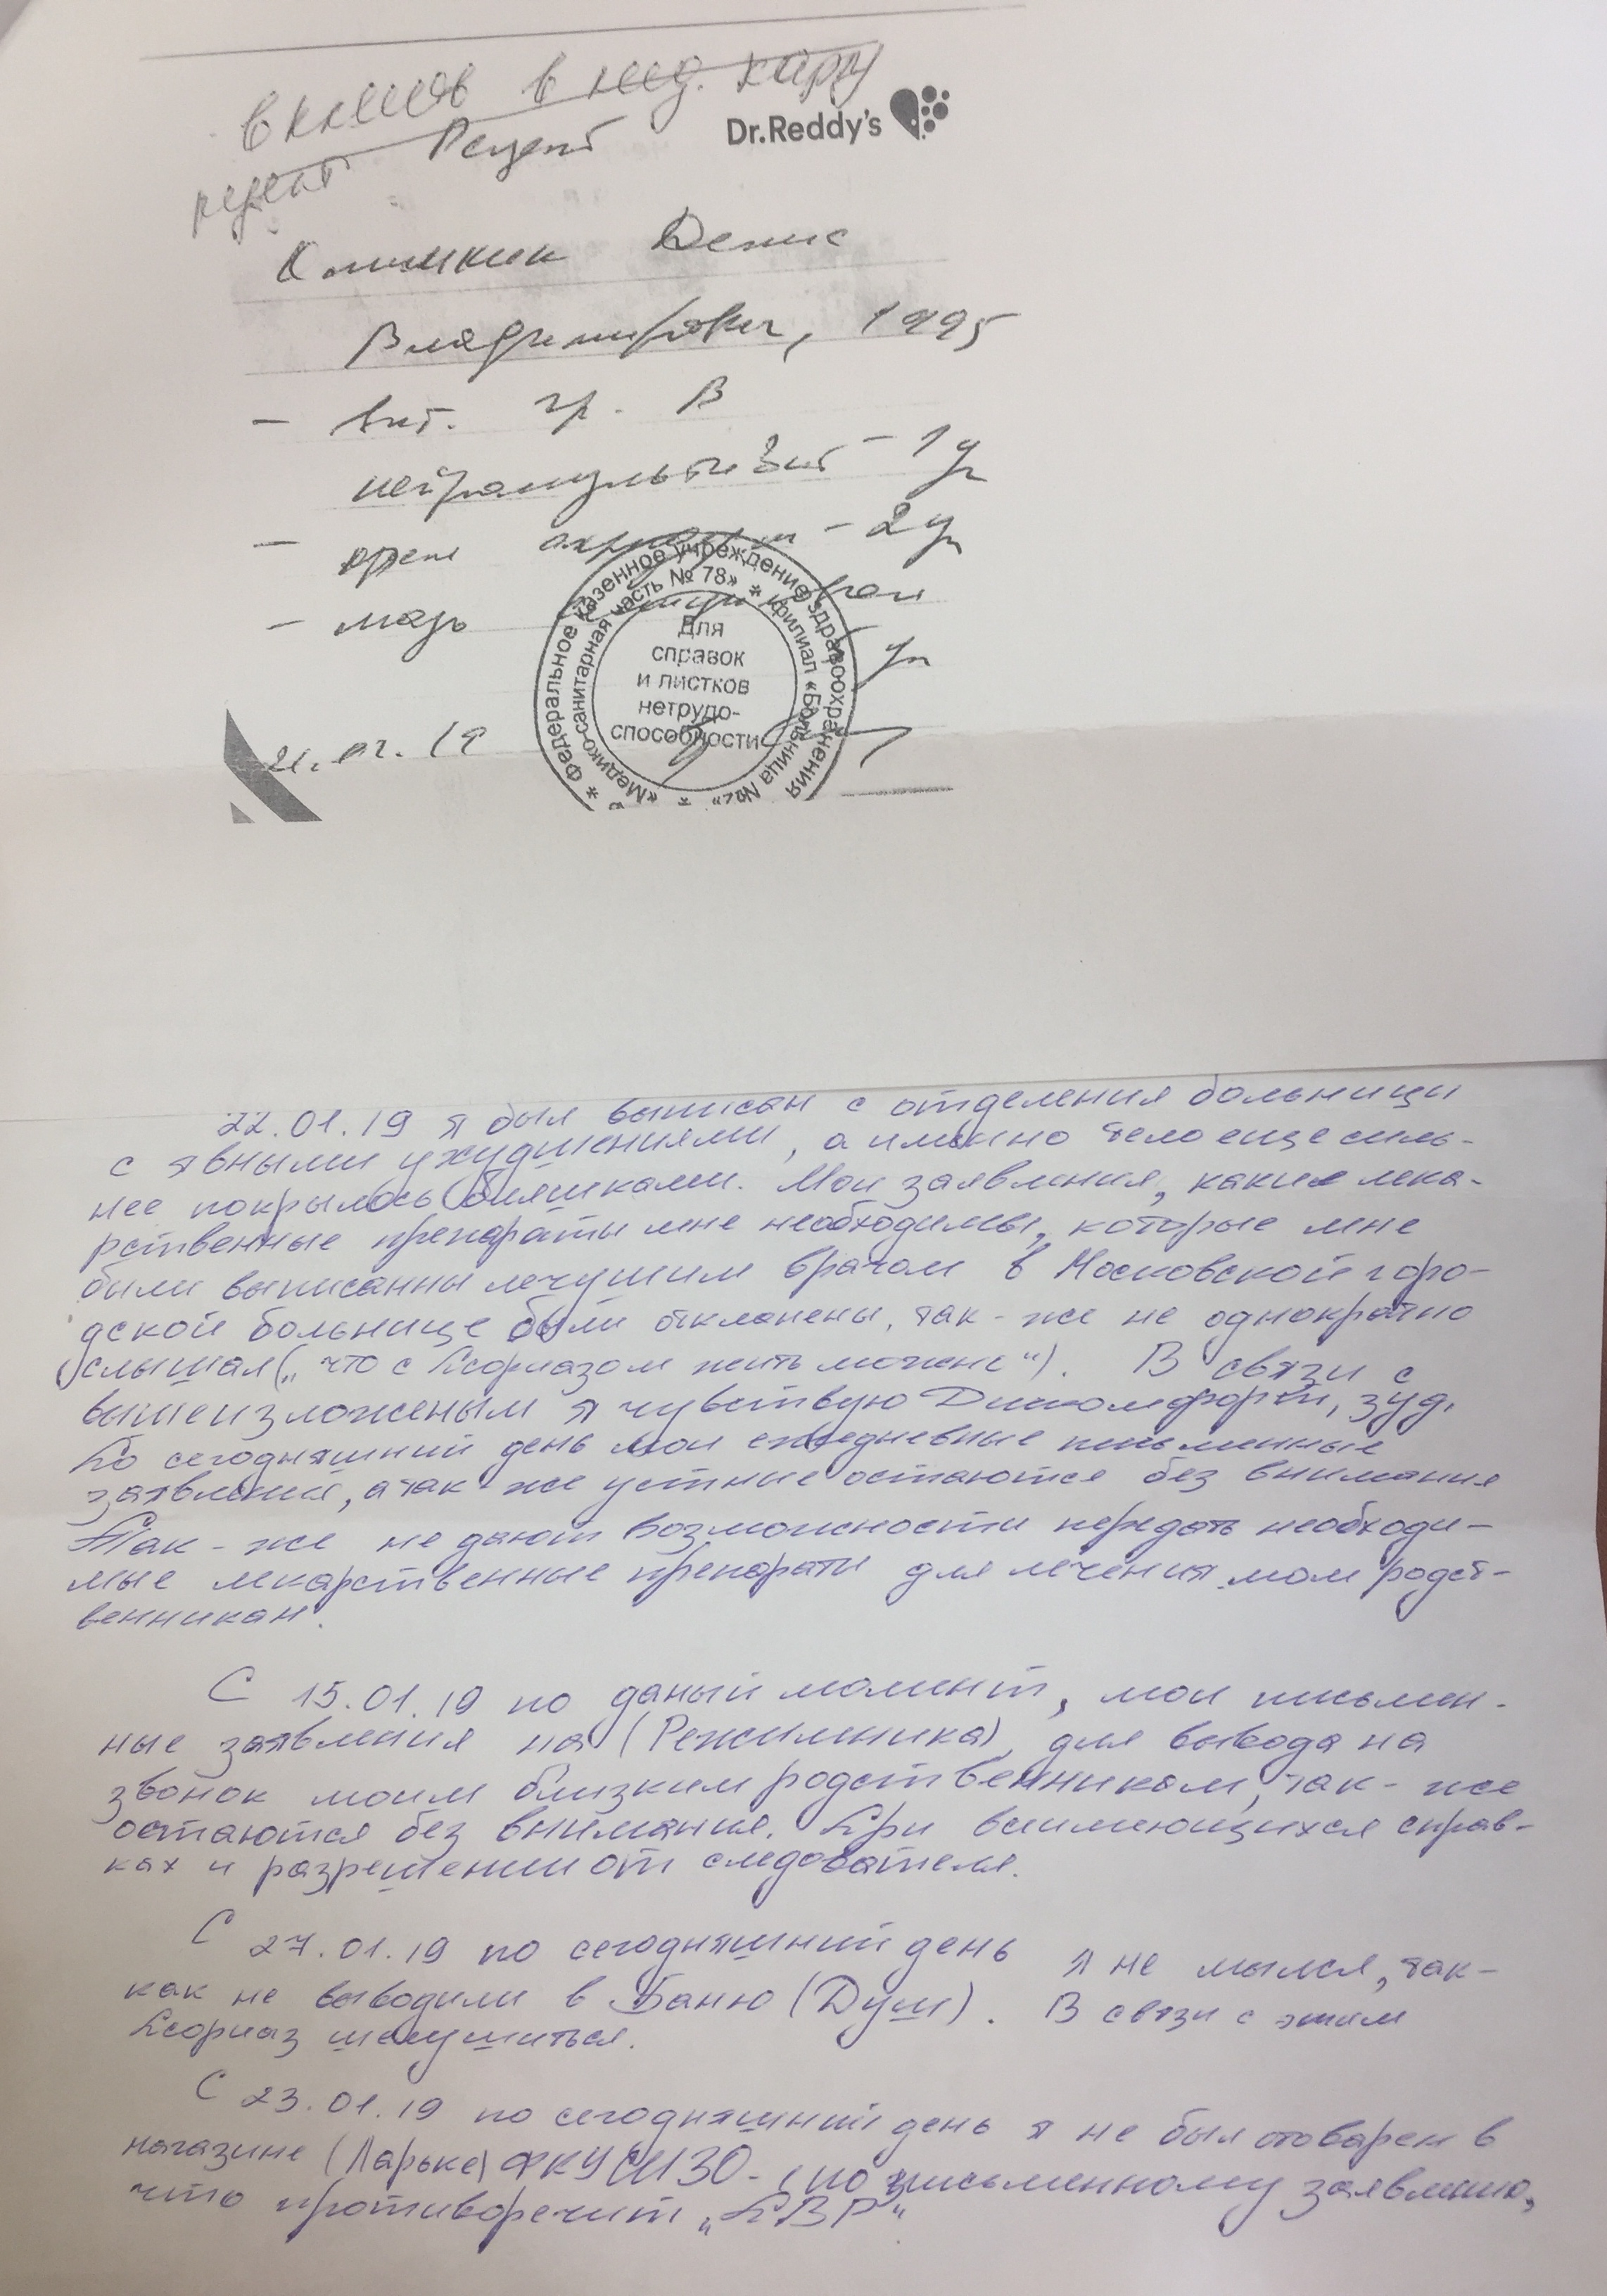 вклеив в мед. карту
рецепт Рецепт
Dr.Reddy's
Климкин Денис
Владимирович, 1995
- вит. гр. В
нейромультивит - 1 у
- крем - 2 уп
- мазь
уп
Федеральное казенное учреждение здравоохранения
«Медико-санитарная часть № 78» * филиал «Больница №2» *
Для
справок
и листков
нетрудо-
способности
21.01.19
22.01.19 я был выписан с отделения больници
с явными ухудшениями, а имынно тело еще силь-
нее покрылось бляшками. Мои заявления, какие лека-
рственные препараты мне необходимы, которые мне
были выписанны лечущим врачом в Московской горо-
дской больнице были отклонены, так-же не однократно
слышал („что с Псориазом жить можно“). В связи с
вышеизложеным я чувствую Дискомфорт, зуд.
По сегодняшний день мои ежедневные письменные
заявлений, а так же устные остаются без внимания
Так-же не дают возможности передать необходи-
мые лекарственные препараты для лечения моим родст-
венникам.
С 15.01.19 по даный момент, мои письмен-
ные заявления на (Режимника) для вывода на
звонок моим близким родственникам, так-же
остаются без внимания. При всиимеющихся справ-
ках и разрешении от следователя.
С 27.01.19 по сегодняшний день я не мылся, так-
как не выводили в Баню (Душ). В связи с этим
Псориаз шелушиться.
С 23.01.19 по сегодняшний день я не был отоварен в
магазине (Ларьке) ФКУ СИЗО-1 по письменному заявлению,
что противоречит „ПВР“